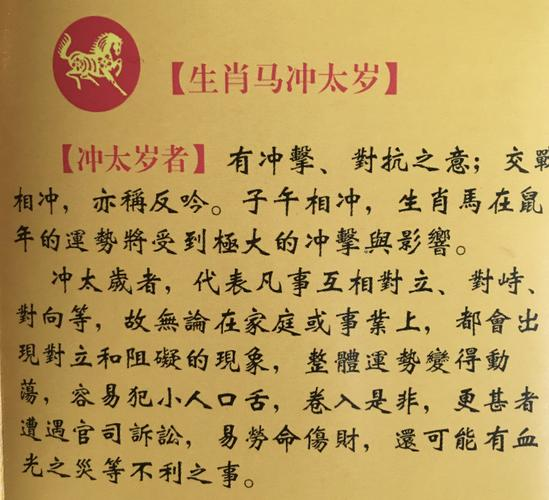 【生肖马冲太岁】
【冲太岁者】有冲擊、對抗之意；交戰
相冲，亦稱反吟。子午相冲，生肖馬在鼠
年的運勢將受到極大的冲擊與影響。
冲太歲者，代表凡事互相對立、對峙、
對向等，故無論在家庭或事業上，都會出
現對立和阻礙的現象，整體運勢變得動
蕩，容易犯小人口舌，卷入是非，更甚者
遭遇官司訴訟，易勞命傷財，還可能有血
光之災等不利之事。